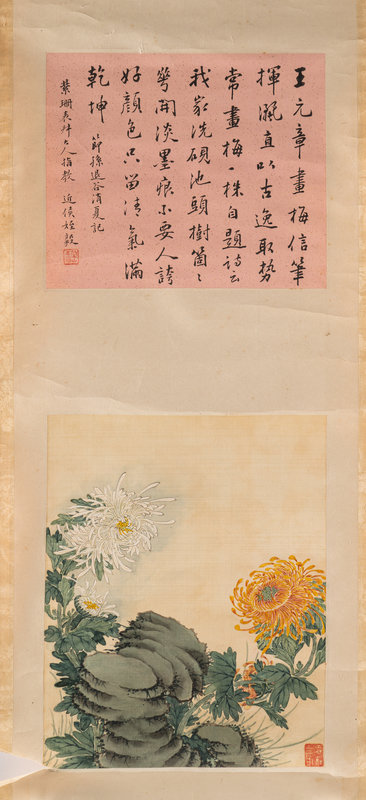 王元章畫梅信筆
揮灑直以古逸取勢
常畫梅一株自題詩云
我家洗硯池頭樹箇々
花開淡墨痕不要人誇
好顏色只留清氣滿
乾坤 節孫退谷消夏記
紫珊表叔大人指教 姪毅